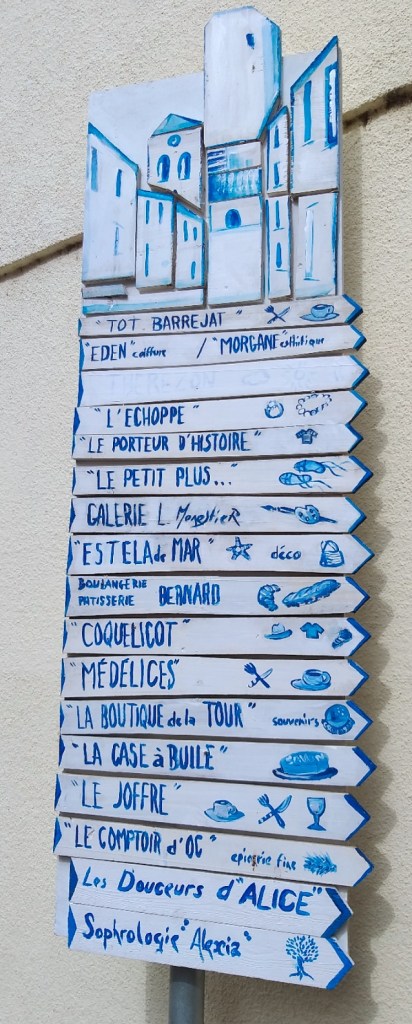 "TOT BARREJAT"
"EDEN" coiffure / "MORGANE" esthétique
"L'ECHOPPE"
"LE PORTEUR D'HISTOIRE"
"LE PETIT PLUS..."
GALERIE L. MonestieR
"ESTELA de MAR" déco
BOULANGERIE
PATISSERIE BERNARD
"COQUELICOT"
"MÉDÉLICES"
"LA BOUTIQUE de la TOUR" souvenirs
"LA CASE à BUILE"
"LE JOFFRE"
"LE COMPTOIR d'OC" epicerie fine
Les Douceurs d'"ALICE"
Sophrologie "Alexia"